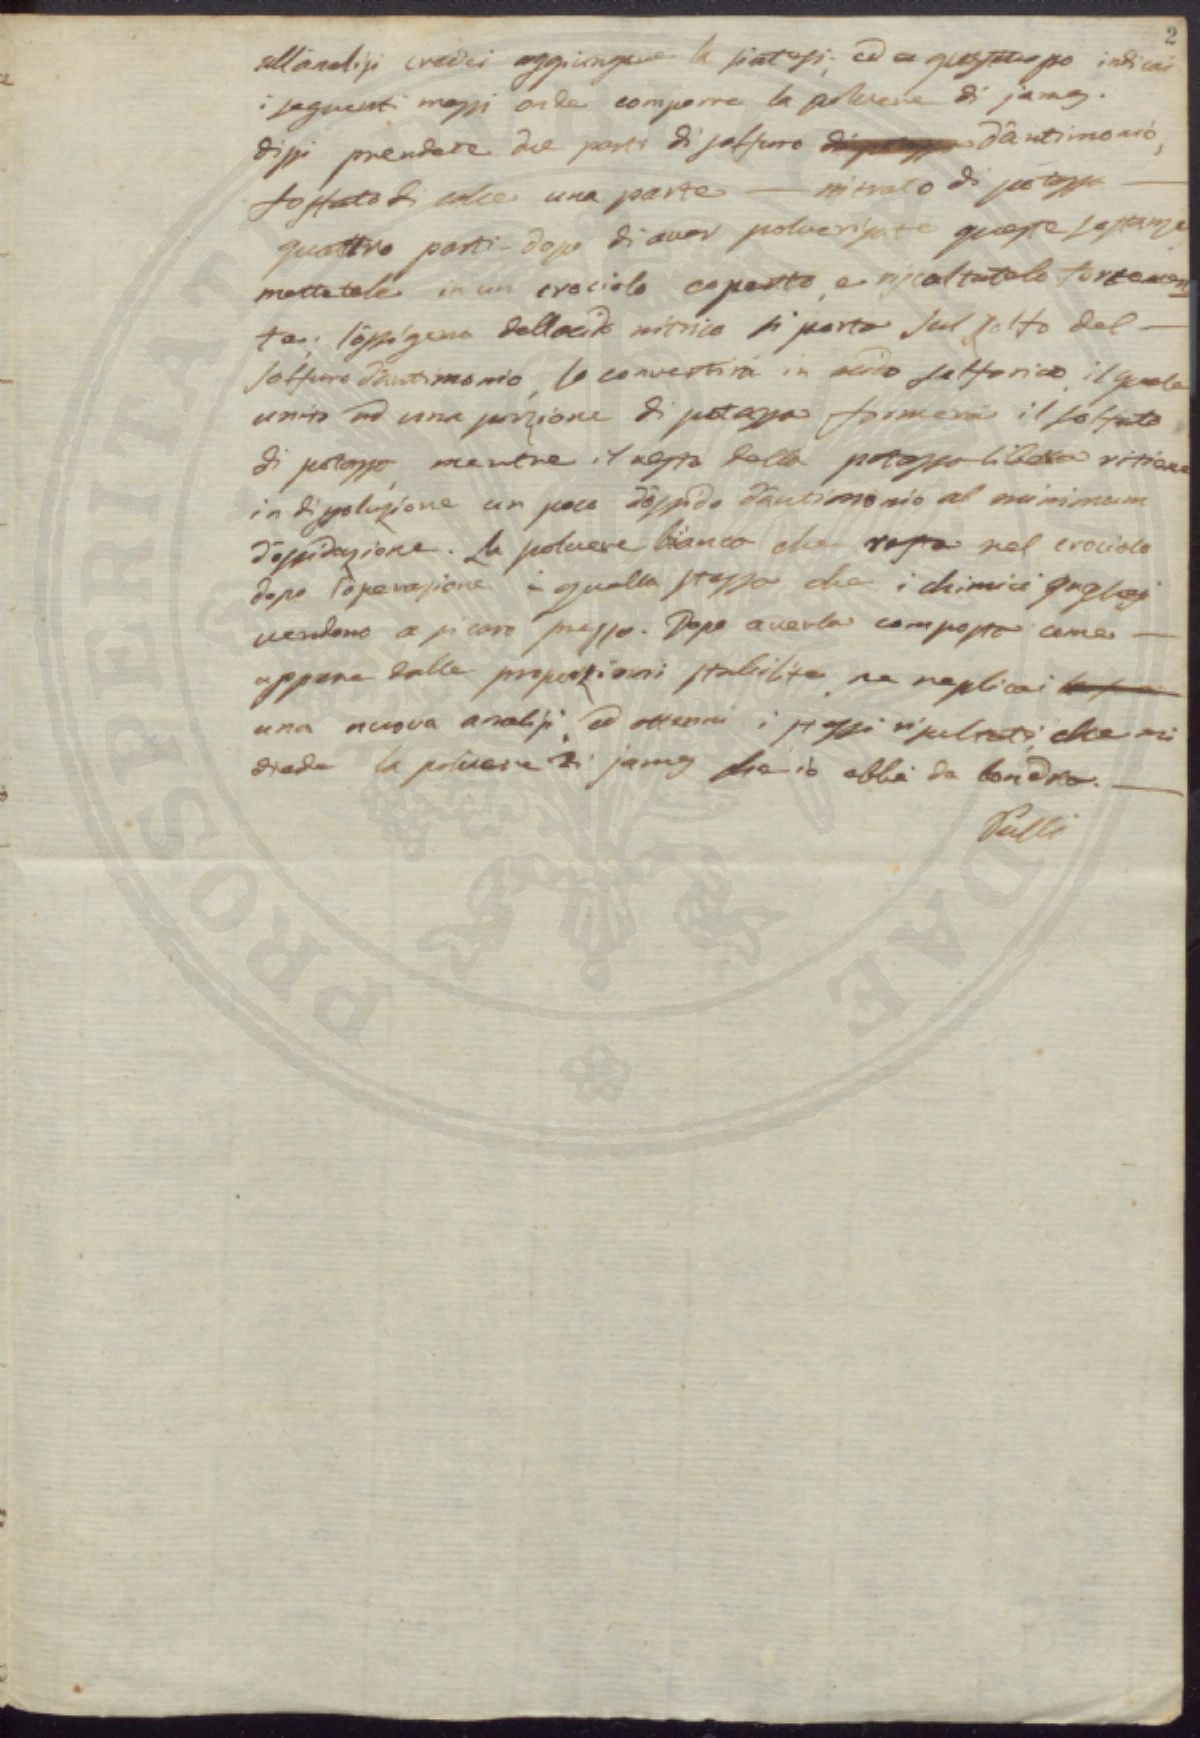 2
all'analisi credei aggiungere la sintesi, ed a quest'uopo indicai
i seguenti mezzi onde comporre la polvere di james.
dissi prendete due parti di solfuro d'antimonio,
fosfato di calce una parte — nitrato di potassa —
quattro parti - dopo di aver polverizzate queste sostanze
mettetele in un crociolo coperto, e riscaltatelo fortemen
te; l'ossigeno dell'acido nitrico si porta sul solfo del —
solfuro d'antimonio, lo convertirá in acido solforico, il quale
unito ad una porzione di potassa formerá il solfato
di potassa, mentre il resto della potassa libera ritiene
in dissoluzione un poco d'ossido d'antimonio al minimum
d'ossidazione. La polvere bianca che resta nel crociolo
dopo l'operazione è quella stessa che i chimici Inglesi
vendono a sì caro prezzo. Dopo averla composta come —
appare dalle proporzioni stabilite, ne replicai
una nuova analisi, ed ottenni i stessi risultati, che mi
diede la polvere di james che io ebbi da Londra. —
Pulli
PROSPERITATI PUBLICAE